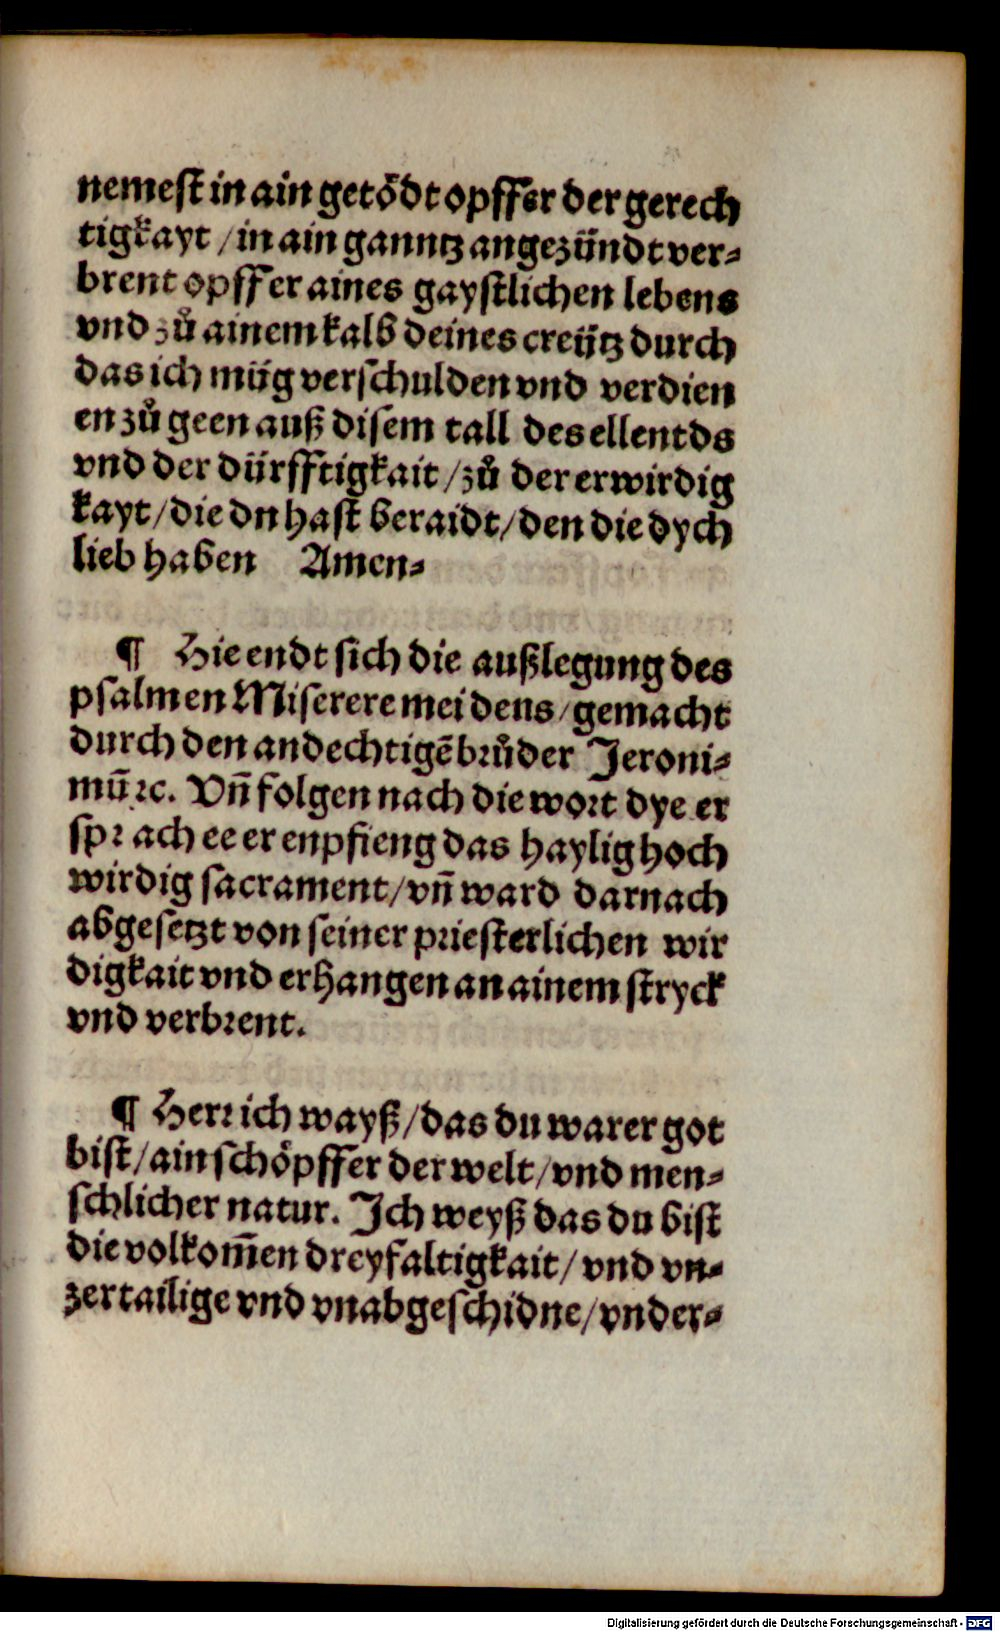 nemest in ain getödt opffer der gerech
tigkayt / in ain ganntz angezündt ver⸗
brent opffer aines gaystlichen lebens
vnd zů ainem kalb deines creütz durch
das ich müg verschulden vnd verdien
en zů geen auß disem tall des ellentds
vnd der dürfftigkait / zů der erwirdig
kayt / die dn hast beraidt / den die dych
lieb haben Amen⸗
¶ Hie endt sich die außlegung des
psalmen Miserere mei deus / gemacht
durch den andechtigē brůder Jeroni⸗
mū ꝛc. Vn̄ folgen nach die wort dye er
sprach ee er enpfieng das haylig hoch
wirdig sacrament / vn̄ ward darnach
abgesetzt von seiner priesterlichen wir
digkait vnd erhangen an ainem stryck
vnd verbrent.
¶ Herr ich wayß / das du warer got
bist / ain schöpffer der welt / vnd men⸗
schlicher natur. Jch weyß das du bist
die volkom̄en dreyfaltigkait / vnd vn⸗
zertailige vnd vnabgeschidne / vnder⸗
Digitalisierung gefördert durch die Deutsche Forschungsgemeinschaft - DFG